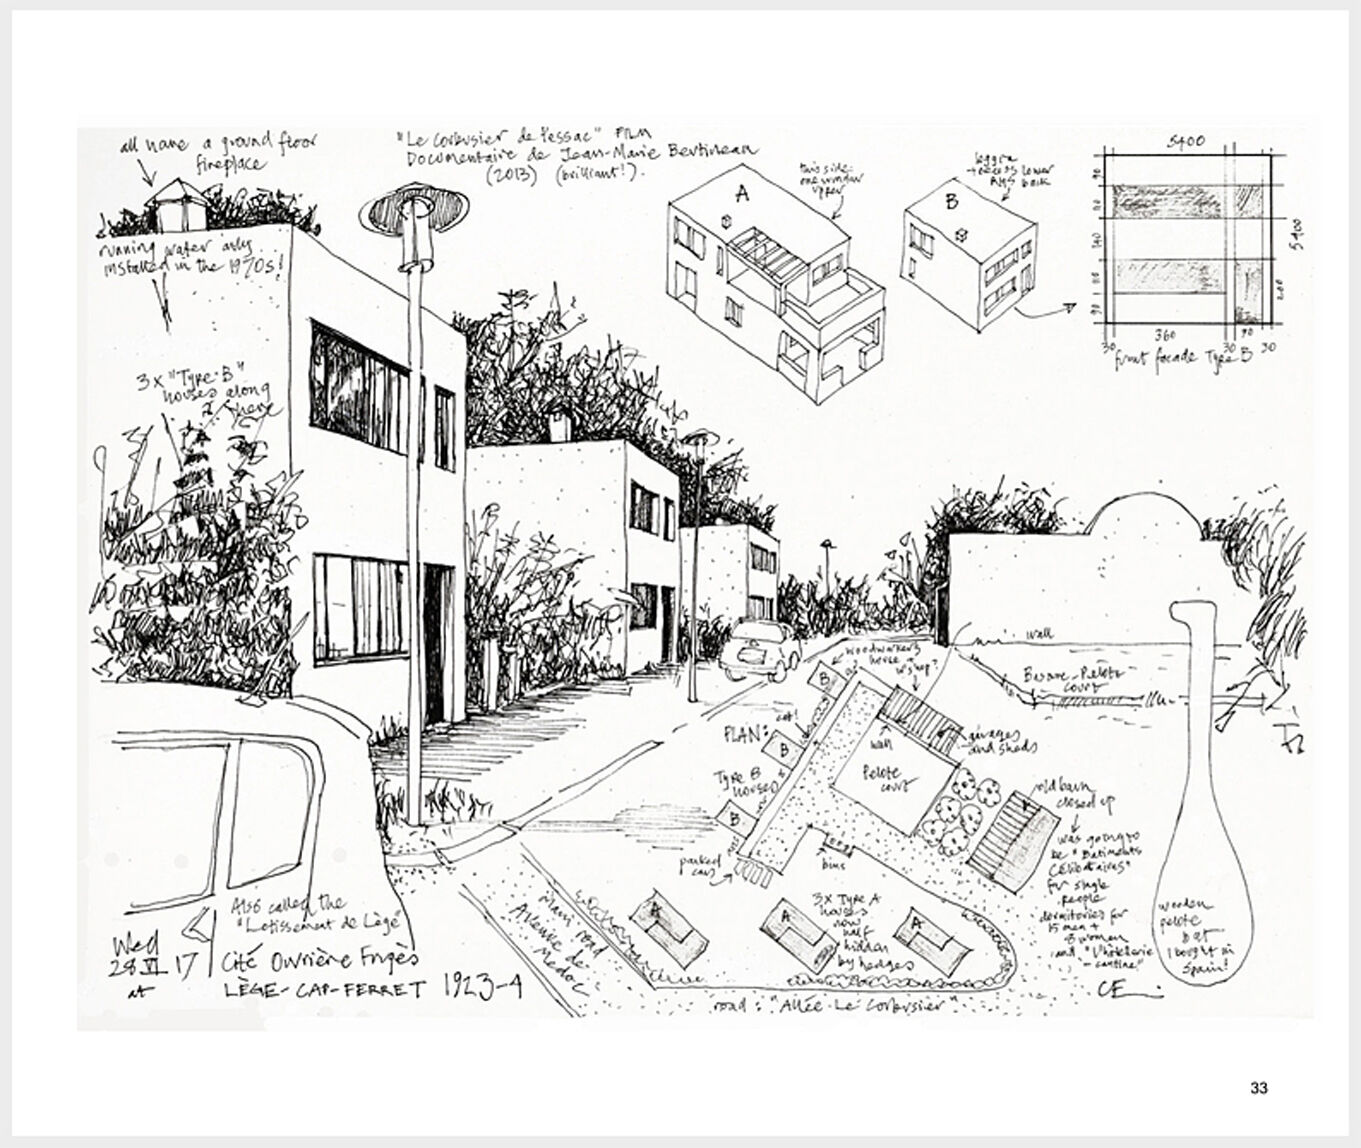 all have a ground floor
fireplace
"Le Corbusier de Pessac" FILM
Documentaire de Jean-Marie Bertineau
(2013) (brilliant!).
running water only
installed in the 1970s!
3x "Type B"
houses along
here
A
this side:
one window
upper
B
loggia
access lower
back
5400
5400
90
110
140
110
90
200
30
360
30
90
30
front facade Type B
wall
Basque-Pelote
court
woodworkers
house
shop?
B
cot!
PLAN:
B
Type B
houses
B
wall
garages
and sheds
Pelote
court
old barn
closed up
was going to
be "Batiments
Célibataires"
for single
people
dormitories for
15 men +
8 women
and "L'hotellerie
-cantine"
parked
cars
bins
3x Type A
houses
now
half
hidden
by hedges
A
A
A
main road
Avenue de
Medoc
road: "Allée Le Corbusier"
wooden
pelote
bat
I bought in
Spain!
CE
Also called the
"Lotissement de Lège"
Wed
28 VI 17
at
Cité Ouvrière Frugès
LÈGE-CAP-FERRET 1923-4
33